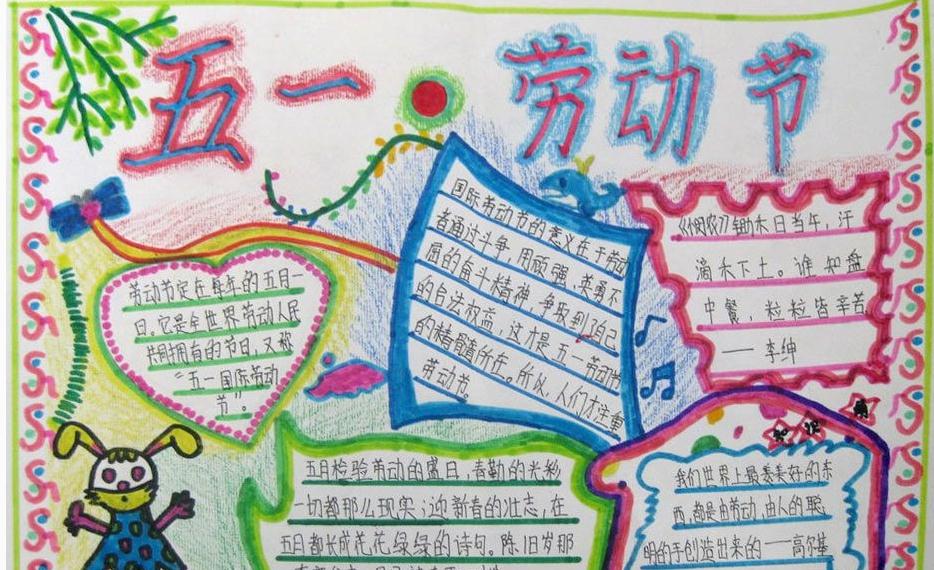 五一 劳动节
劳动节定在每年的五月一
日,它是全世界劳动人民
共同拥有的节日,又称
“五一国际劳动
节”。
国际劳动节的意义在于劳动
者通过斗争,用顽强、英勇不
屈的奋斗精神,争取到了自己
的合法权益,这才是五一劳动节
的精髓所在。所以,人们才注重
劳动节。
《悯农》锄禾日当午,汗
滴禾下土。谁知盘
中餐,粒粒皆辛苦
——李绅
五月检验劳动的盛日,春勤的光
一切都那么现实;迎新春的壮志,在
五月都长成花花绿绿的诗句。陈旧岁那
我们世界上最美好的东
西,都是由劳动、由人的聪
明的手创造出来的——高尔基